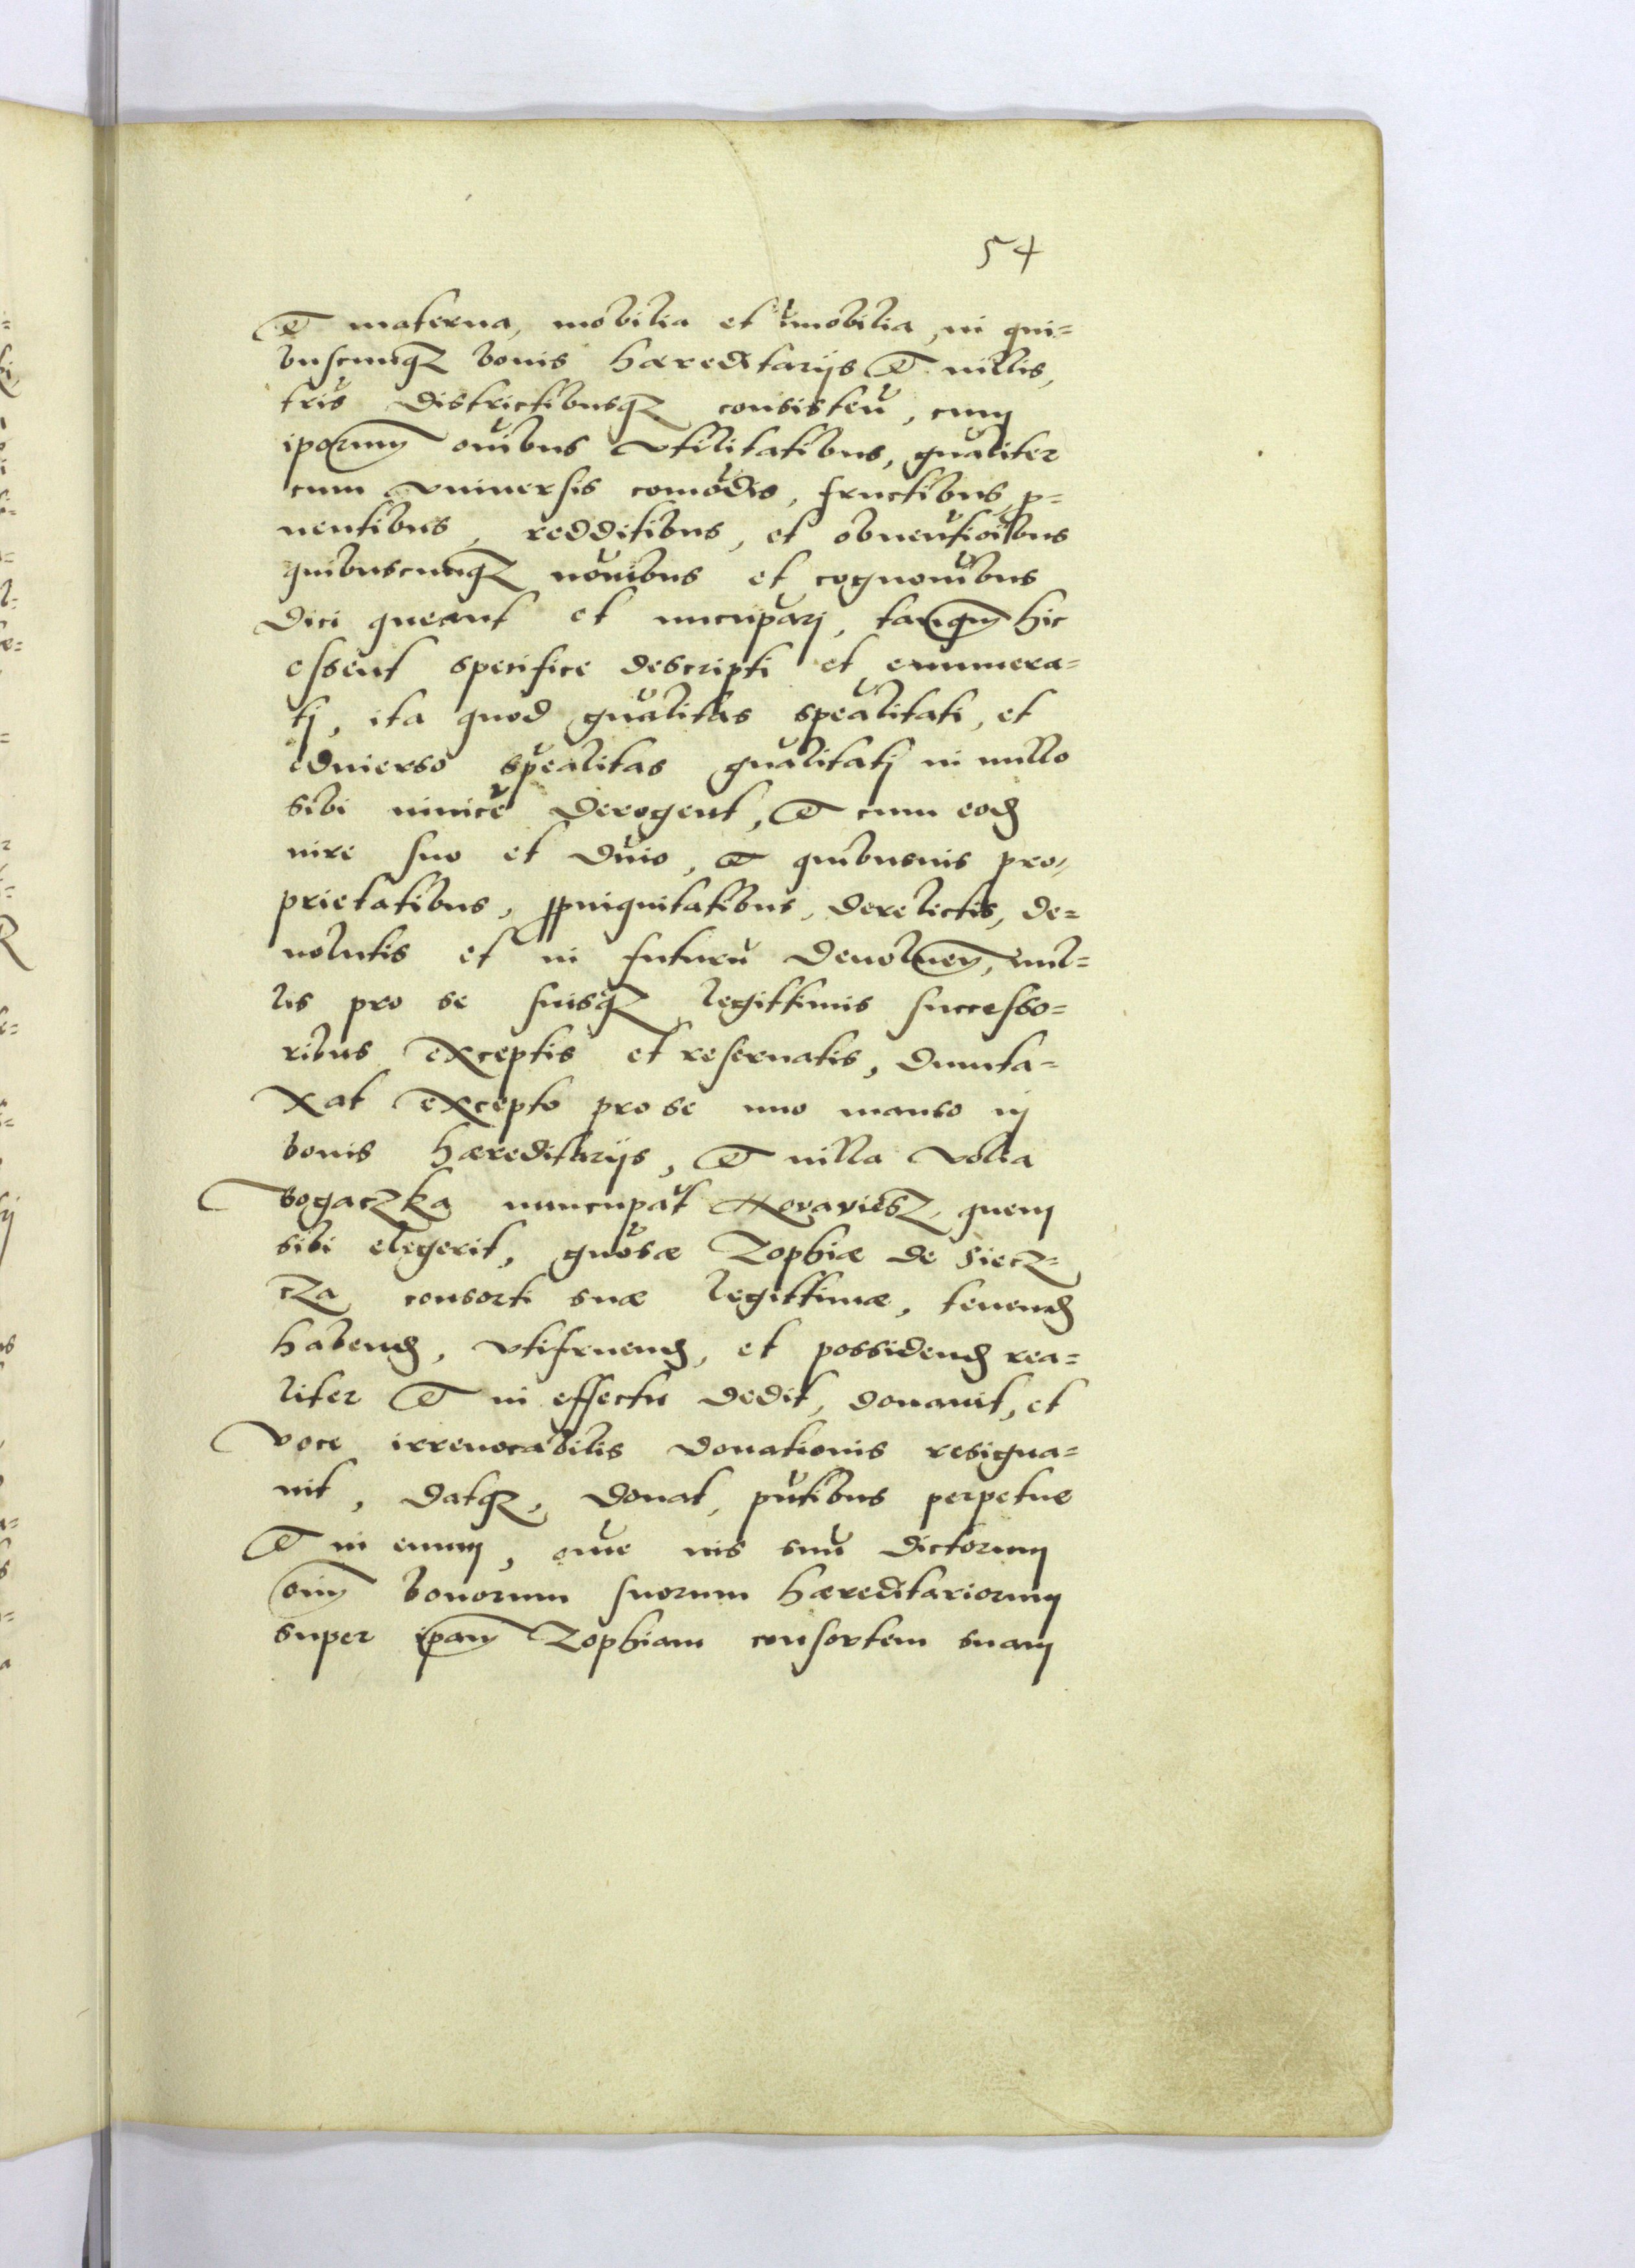 54
Et materna, mobilia et imobilia, in qui=
buscunq3 bonis hæreditarijs et uillis,
tris districtibusq3 consisteñ, cum
iporum oīnibus vtilitatibus, gnāliter
cum vniuersis comodis, fructibus, p=
uentibus, redditibus, et obuentioībus
quibuscunq3 noīnibus et cognoībus
dici queant et nncupari, tanqm hic
essent specifice descripti et enumera=
ti, ita quod gnālitas speālitati, et
ediuerso speālitas gnālitati in nullo
sibi inuice derogent, Et cum eod
iure suo et dnio, et quibusuis pro,
prietatibus, ppinquitatibus, derelictis, de=
uolutis et in futuru deuoluen, nul=
lis pro se suisq3 legittimis successo=
ribus exceptis et reseruatis, dunta=
xat excepto pro se uno manso in
bonis hæreditarijs, Et uilla Volia
Bogaczka nuncupat quem
sibi elegerit, gnōsæ Zophiæ de Siecz=
cza consorti suæ legittimæ, tenend
habend, vtifruend, et possidend rea=
liter Et in effectu dedit, donauit, et
voce irreuocabilis donationis resigna=
uit, datq3, donat, pntibus perpetue
Et in euum, one ius suu dictorum
oim bonorum suorum hæreditariorum
super ipam Zophiam consortem suam